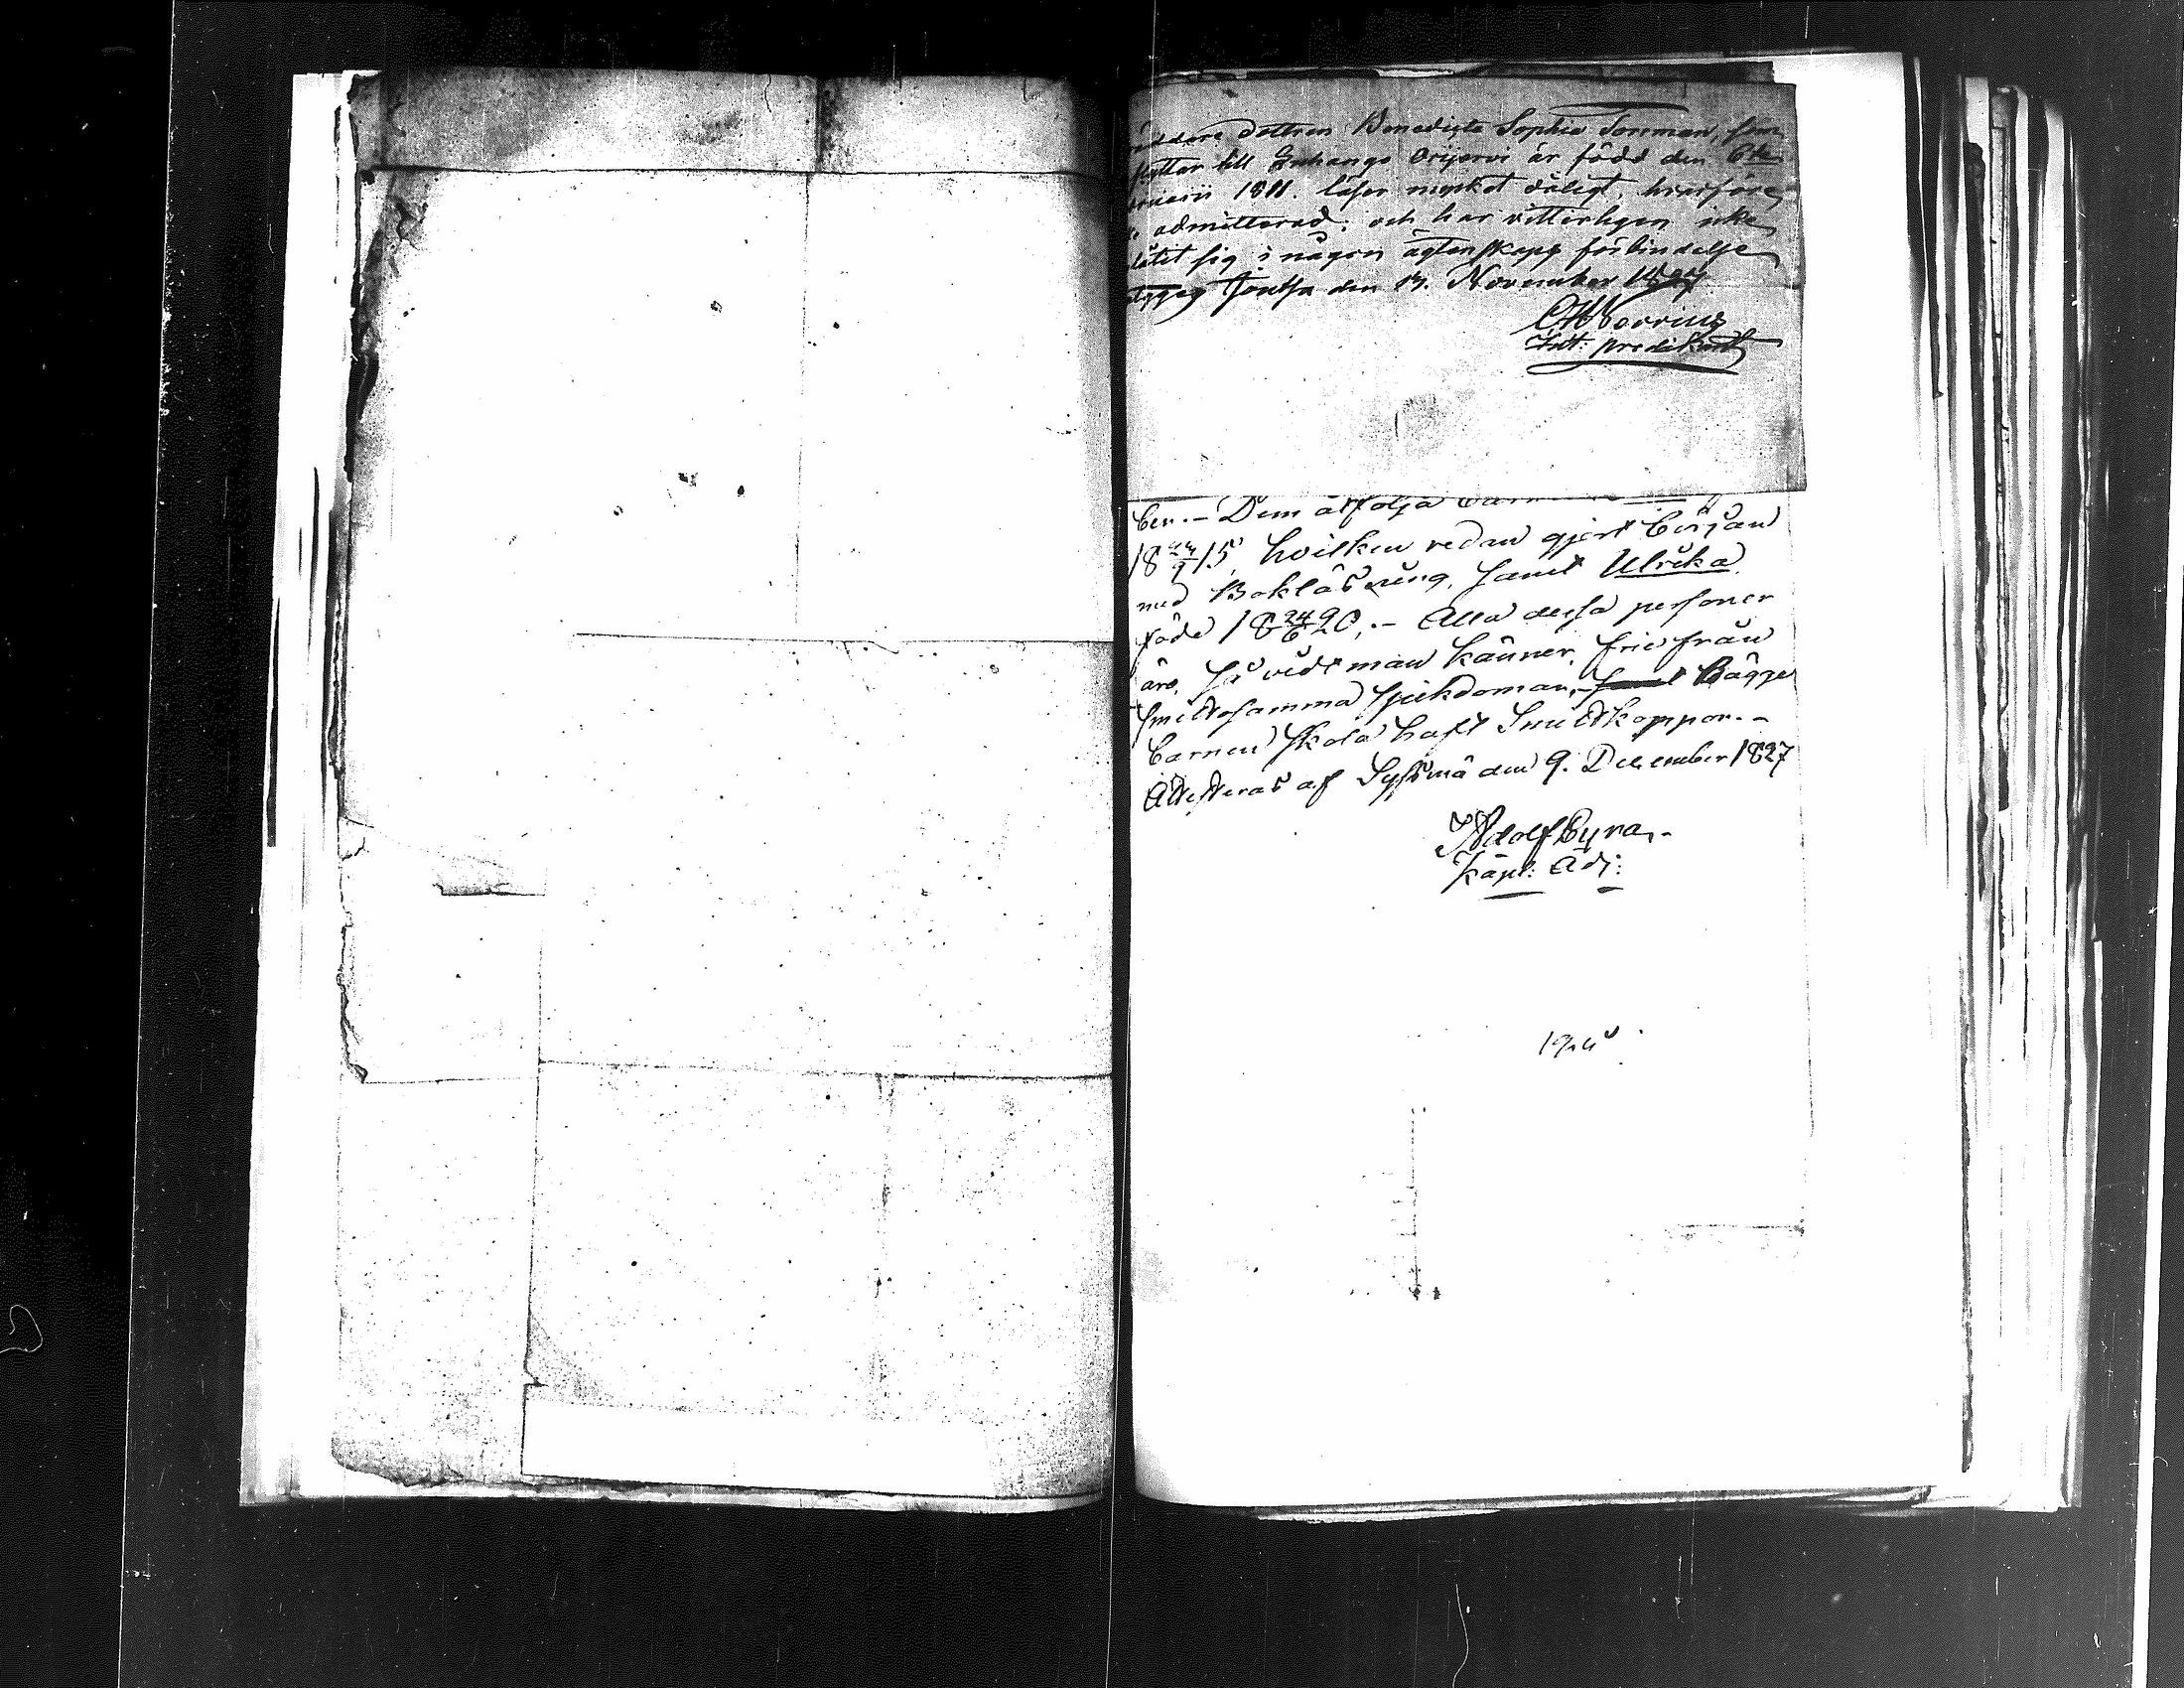 dottren Benedicta Sophia Torrman, som
flyttar till Orijervi är född den 6te
1811. läser mycket dåligt, hvarföre
admitterad; och har vitterligen icke
låtit sig i någon ägtenskaps förbindelse
Joutsa den 13. November 1827
Int: predikant
ber. – Dem åtfölja
18 24/1 15, hvilken redan gjort början
med Bokläsning, samt Ulrika
född 18 24/6 20. – Alla dessa personer
äro, så vidt man känner, frie från
smittosamma sjukdomar, – Bägge
barnen skola haft Smittkoppor. –
Attesteras af Sysmä den 9. December 1827
Adolf Cyra. –
Kapl: Adj: